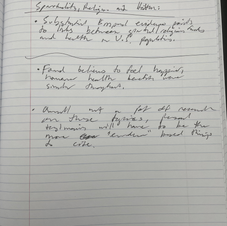 Spirituality, Religion and
• Substantial, personal evidence points
to links between spiritual/religious
and health in U.S. population.
• Found believers to feel happier,
however health benefits were
similar throughout.
• Overall, not a lot of research
on these topics, personal
testimonies will have to be the
more "evidence" based things
to cite.